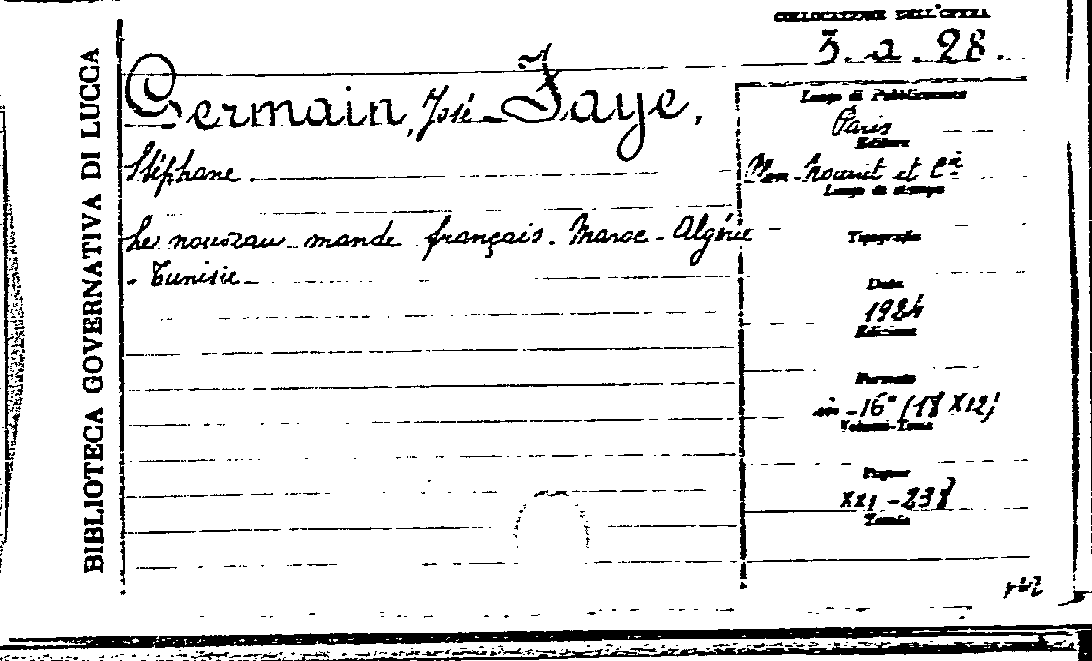 BIBLIOTECA GOVERNATIVA DI LUCCA
COLLOCAZIONE DELL'OPERA
3. a. 28.
Germain, José - Faye,
Stéphane
Le nouveau mande français. Maroc - Algérie
- Tunisie
Luogo di Pubblicazione
Paris
Editore
Plon-Nourrit et Cie
Luogo di stampa
Tipografia
Data
1924
Edizione
Formato
in-16° (18 x 12)
Volumi-Tomi
Pagine
XXI - 238
Tavole